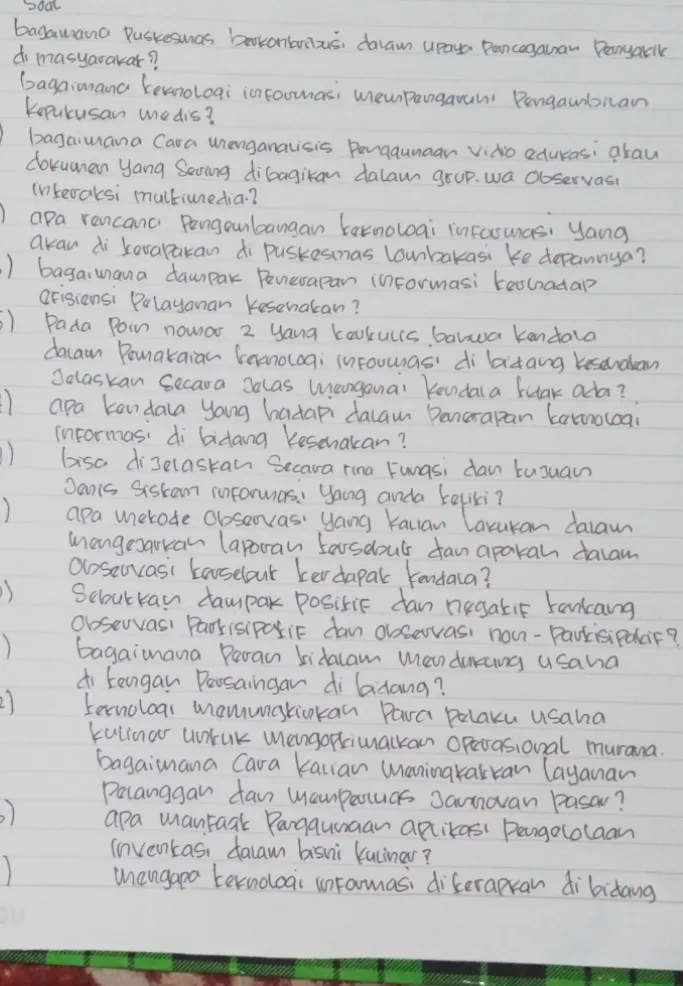 Soal
bagaimana Puskesmas berkontribusi dalam upaya Pencegahan Penyakit
di masyarakat?
bagaimana teknologi informasi mempengaruhi Pengambilan
keputusan medis?
) bagaimana Cara menganalisis Penggunaan vidio edukasi atau
dokumen yang Sering dibagikan dalam grup.wa Observasi
interaksi multimedia.?
) apa rencana Pengembangan teknologi informasi yang
akan di terapakan di puskesmas lombakasi ke depannya?
) bagaimana dampak Penerapan informasi terhadap
efisiensi Pelayanan kesehatan?
) Pada Poin nomor 2 yang tertulis bahwa kendala
dalam Pemakaian teknologi informasi di bidang kesehatan
Jelaskan Secara Jelas mengenai kendala tidak ada?
) apa kendala yang hadapi dalam Penerapan teknologi
informasi di bidang kesehatan?
) bisa di Jelaskan Secara rina Fungsi dan tujuan
Jenis Sistem informasi yang anda teliti?
) apa metode observasi yang kalian lakukan dalam
mengejarkan laporan tersebut dan apakah dalam
Observasi tersebut terdapat kendala?
) Sebutkan dampak positif dan negatif tentang
Observasi Partisipatif dan observasi non-partisipatif?
) bagaimana Peran ti dalam mendukung usaha
di tengah Persaingan di bidang?
2) teknologi memungkinkan Para pelaku usaha
kuliner untuk mengoptimalkan operasional murana.
bagaimana Cara kalian meningkatkan layanan
pelanggan dan memperluas Jangkauan pasar?
) apa manfaat Penggunaan aplikasi pengelolaan
inventasi dalam bisni kuliner?
) mengapa teknologi informasi diterapkan di bidang